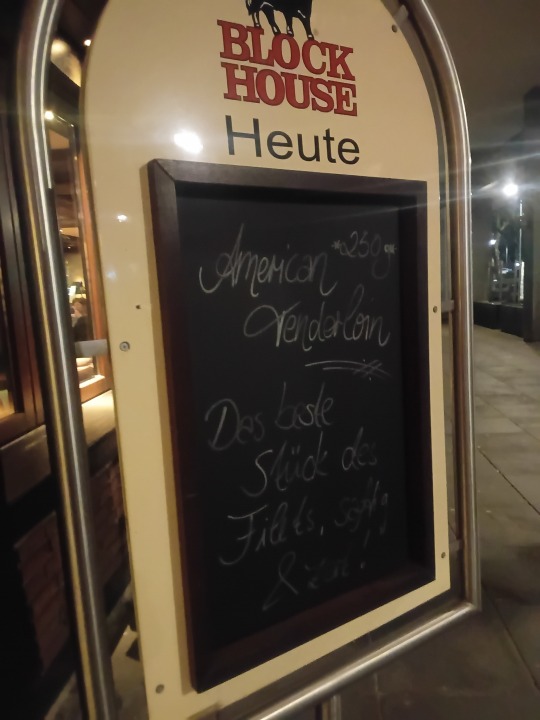 BLOCK
HOUSE
Heute
American *250g*
Tenderloin
Das beste
Stück des
Filets, saftig
& zart!